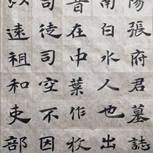 陽張府君墓誌
南白水人也出
昔在中葉作牧
司徒司空不因
以遠祖和吏部